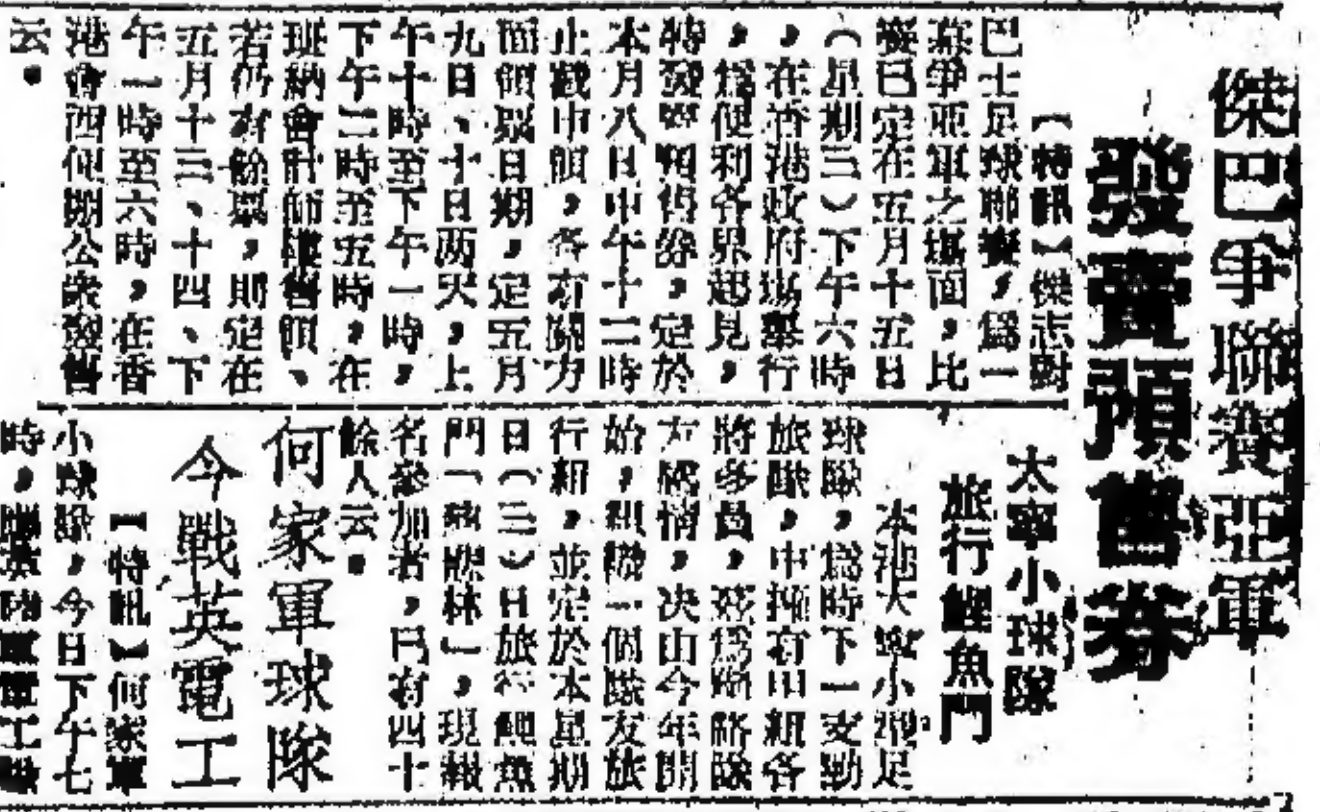 傑巴爭聯賽亞軍
發賣預售券
【特訊】傑志對
巴士足球聯賽，為一
幕爭亞軍之場面，比
賽已定在五月十五日
（星期三）下午六時
，在香港政府場舉行
，為便利各界起見，
特發賣預售券，定於
本月八日中午十二時
止截申領，各有關方
面領票日期，定五月
九日、十日两天，上
午十時至下午一時，
下午二時至五時，在
班納會計師樓售領、
若仍有餘票，則定在
五月十三、十四、下
午一時至六時，在香
港會西便閘公衆發售
云。
太寧小球隊
旅行鯉魚門
本港太寧小型足
球隊，為時下一支勁
旅隊，中擁有甲組各
將多員，茲為聯絡隊
友感情，决由今年開
始，組織一個隊友旅
行組，並定於本星期
日（三）日旅行鯉魚
門「」，現報
名參加者，已有四十
餘人云。
何家軍球隊
今戰英電工
【特訊】何家軍
小球隊，今日下午七
時，英陸軍電工